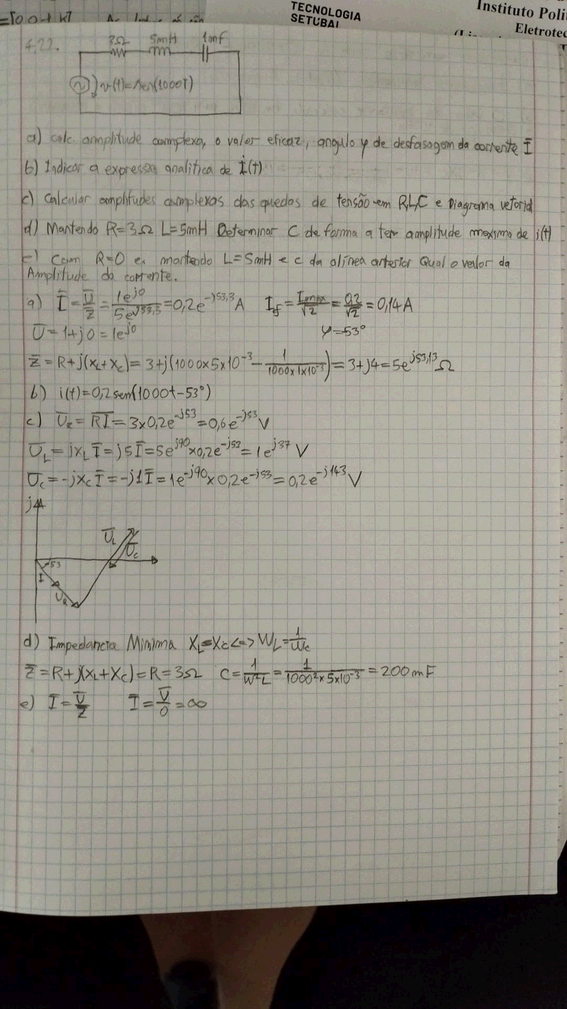 TECNOLOGIA
SETÚBAL
Instituto Poli
Eletrotec
4.22.
3Ω 5mH 1mF
v(t)=sen(1000t)
a) calc amplitude complexa, o valor eficaz, angulo φ de desfasagem da corrente Ī
b) Indicar a expressa analitica de i(t)
c) Calcular amplitudes complexas das quedas de tensão em R,L,C e Diagrama vetorial
d) Mantendo R=3Ω L=5mH Determinar C de forma a ter amplitude maxima de i(t)
e) Com R=0 e mantendo L=5mH e c da alinea anterior Qual o valor da
Amplitude da corrente.
a) Ī=Ū/Z̄=1e^j0/5e^j53,3=0,2e^-j53,3 A Ief=Imax/√2=0,2/√2=0,14A
Ū=1+j0=1e^j0 φ=53°
Z̄=R+j(XL+XC)=3+j(1000x5x10^-3-1/(1000x1x10^-3))=3+j4=5e^j53,13 Ω
b) i(t)=0,2sen(1000t-53°)
c) ŪR=R̄Ī=3x0,2e^-j53=0,6e^-j53 V
ŪL=jXLĪ=j5Ī=5e^j90x0,2e^-j53=1e^j37 V
ŪC=-jXCĪ=-j1Ī=1e^-j90x0,2e^-j53=0,2e^-j143 V
j
ŪL
ŪC
53
I
UR
d) Impedancia Minima XL=XC<=>WL=1/WC
Z̄=R+j(XL+XC)=R=3Ω C=1/W²L=1/(1000²x5x10^-3)=200mF
e) Ī=Ū/Z̄ Ī=Ū/0=∞